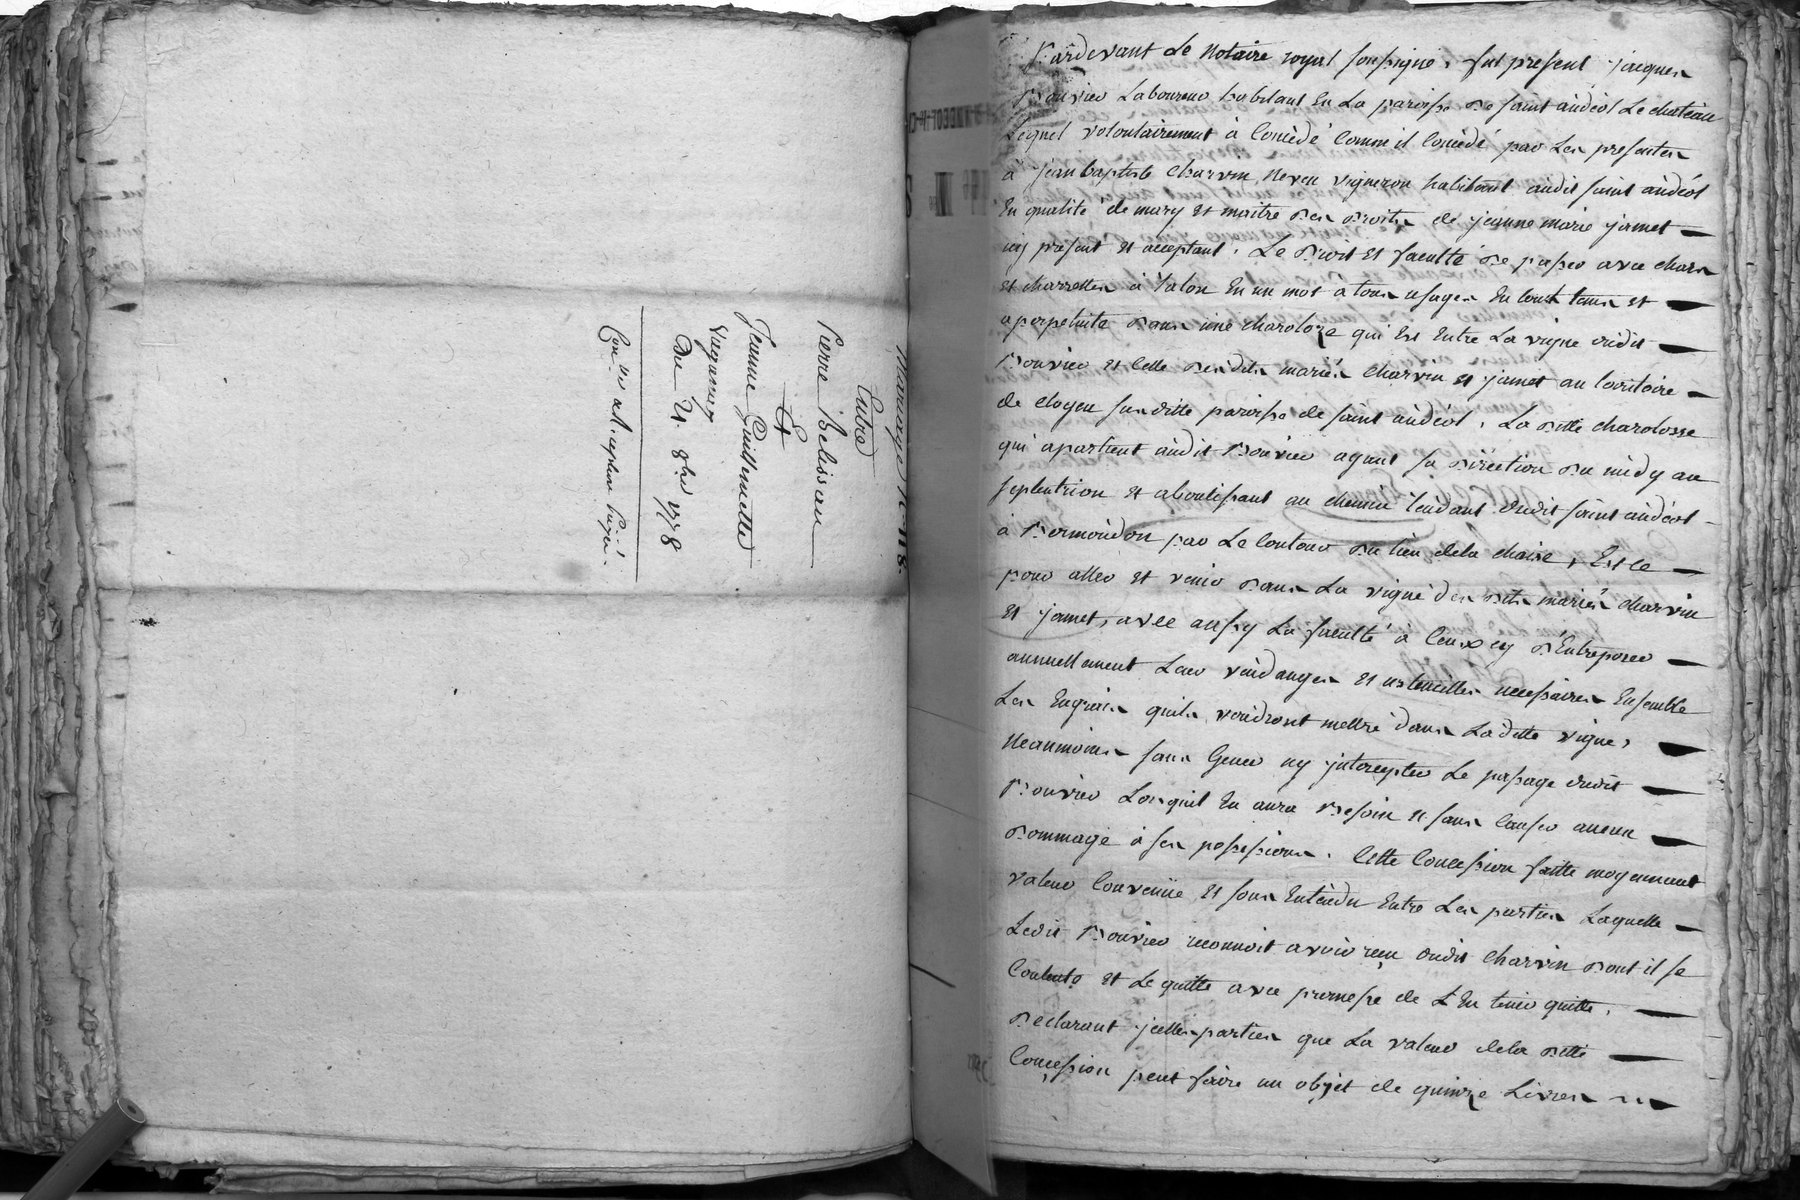 Mariage N. 118.
Entre
Pierre Belisseau
Et
Jeanne Guillemette
Vaganay
Du 21. 8bre 1778
Con.
Pardevant Le Notaire royal soussigné, fut present jacques
Bouvier Laboureur habitant En La paroisse De saint andéol Le chateau
Lequel volontairement à Concédé Comme il Concédé par Les presentes
à jean baptiste Charvin neveu vigneron habitant audit saint andéol
En qualité de mary et maitre Des Droits de jeanne marie jamet
icy présent et acceptant, Le Droit et faculté De passer avec chars
et charrettes à Talon En un mot a tous usages En tout tems et
aperpetuité Dans une charoloze qui Est Entre La vigne dudit
Bouvier et Celle Desdits mariés Charvin et jamet au territoire
de cloyeu susditte paroisse de saint andéol, La ditte charolosse
qui apartient audit Bouvier ayant sa Direction Du midy au
septentrion et aboutissant au chemin tendant dudit saint andéol
à Bermondon par Le Contour Du lieu dela chaise, Et Ce
pour aller et venir Dans La vigne des Dits mariés charvin
et jamet, avec aussy La faculté à Ceux cy D'Entreposer
annuellement Leur vandanges et ustencilles necessaires Ensemble
Les Engrais quils voudront mettre dans Laditte vigne,
Neanmoins sans Gener ny jntercepter Le passage dudit
Bouvier Lorsquil En aura Besoin et sans Causer aucun
Dommage à ses possessions. Cette Concession faitte moyennant
valeur Convenüe et sous Entendu Entre Les parties Laquelle
Ledit Bouvier reconnoit avoir reçu dudit Charvin Dont il se
Contente et Le quitte avec promesse de L'En tenir quitte.
Declarant jcelles parties que La valeur dela Ditte
Concession peut faire un objet de quinze Livres